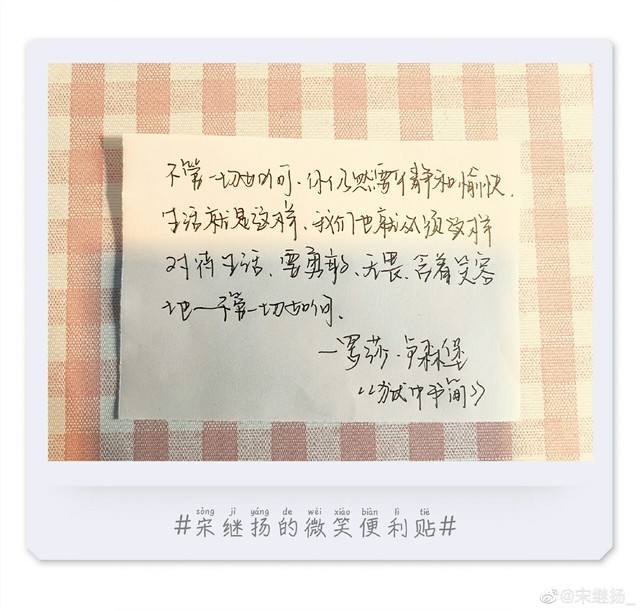 不管一切如何、你仍然要平静和愉快。
生活就是这样，我们也就必须这样
对待生活、要勇敢、无畏、含着笑容
地—不管一切如何。
—罗莎·卢森堡
《狱中书简》
sòng jì yáng de wēi xiào biàn lì tiē
#宋继扬的微笑便利贴#
@宋继扬_